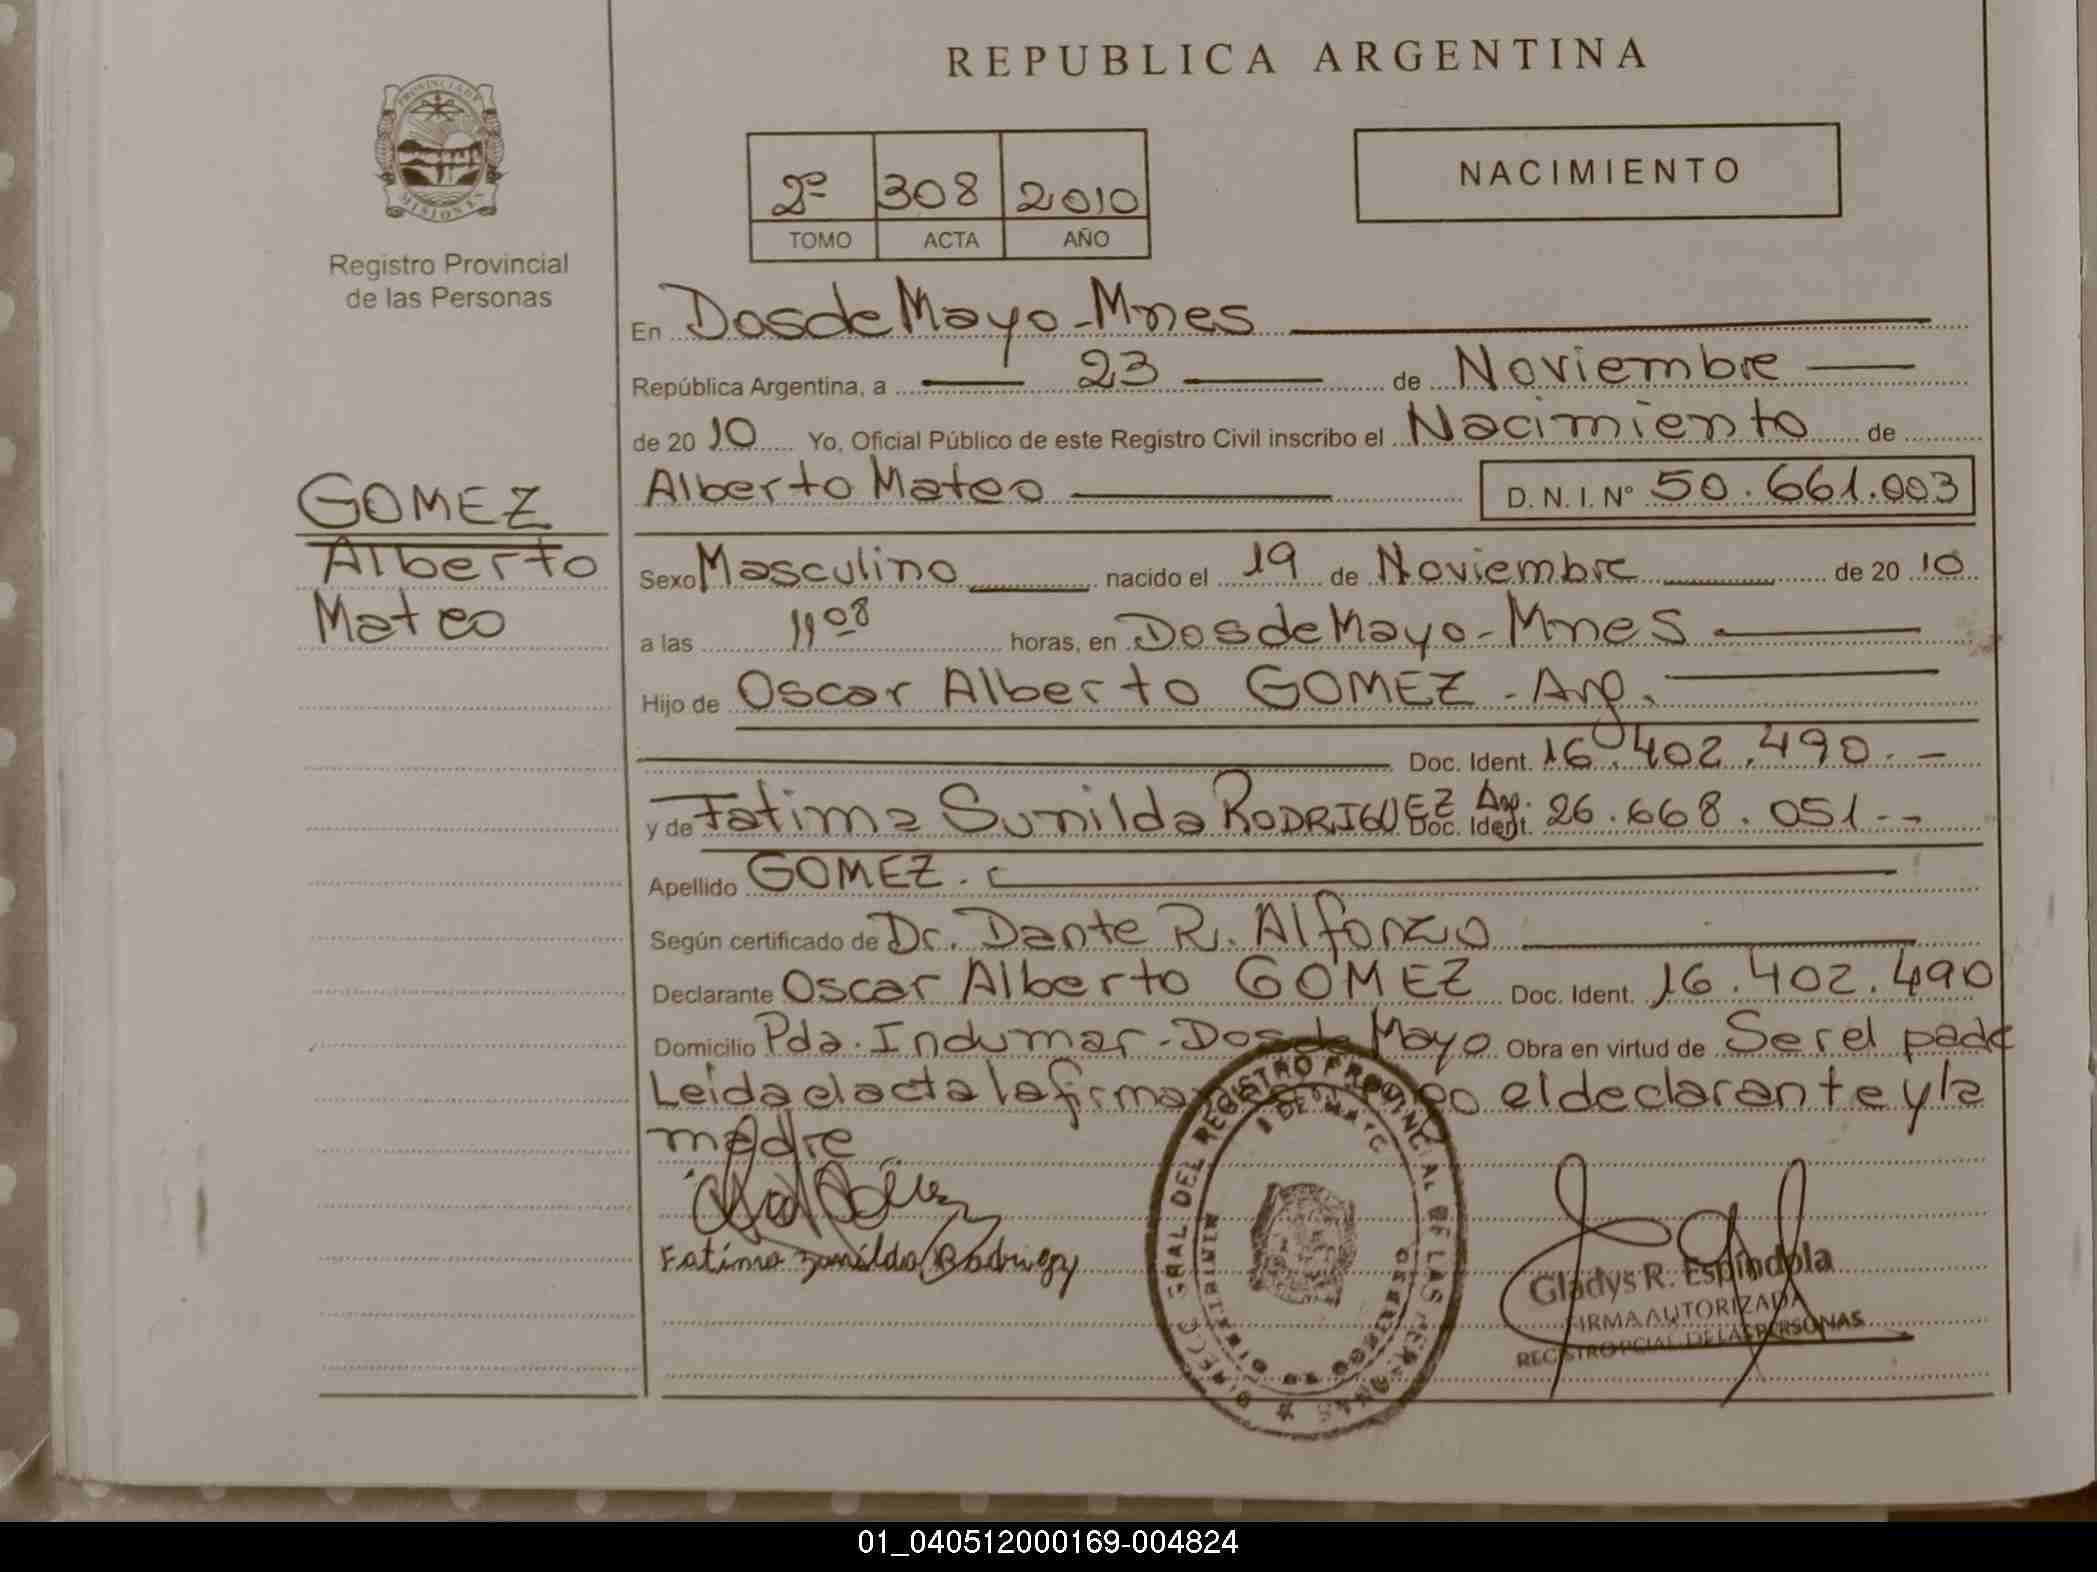 REPUBLICA ARGENTINA
PROVINCIA DE
MISIONES
Registro Provincial
de las Personas
2º 308 2010
TOMO ACTA AÑO
NACIMIENTO
En Dos de Mayo - Mnes
República Argentina, a 23 de Noviembre
de 20 10 Yo, Oficial Público de este Registro Civil inscribo el Nacimiento de
Alberto Mateo D. N. I. Nº 50.661.003
GOMEZ
Alberto
Mateo
Sexo Masculino nacido el 19 de Noviembre de 20 10
a las 11 08 horas, en Dos de Mayo - Mnes
Hijo de Oscar Alberto GOMEZ - Arg.
Doc. Ident. 16.402.490.-
y de Fatima Sunilda RODRIGUEZ Arg. Doc. Ident. 26.668.051.--
Apellido GOMEZ.
Según certificado de Dr. Dante R. Alfonzo
Declarante Oscar Alberto GOMEZ Doc. Ident. 16.402.490
Domicilio Pda. Indumar - Dos de Mayo Obra en virtud de Ser el padre
Leida el acta la firman el declarante y la
madre
Fatima Zunilda Rodriguez
DIRECC. GRAL DEL REGISTRO PROVINCIAL DE LAS PERSONAS
DE MAYO
Gladys R. Espíndola
FIRMA AUTORIZADA
REGISTRO PCIAL. DE LAS PERSONAS
01_040512000169-004824